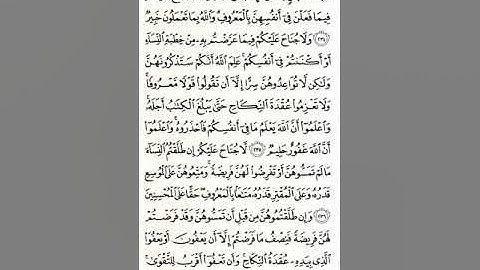 فِيمَا فَعَلْنَ فِىٓ أَنفُسِهِنَّ بِٱلْمَعْرُوفِ وَٱللَّهُ بِمَا تَعْمَلُونَ خَبِيرٌ
﴿٢٣٤﴾ وَلَا جُنَاحَ عَلَيْكُمْ فِيمَا عَرَّضْتُم بِهِۦ مِنْ خِطْبَةِ ٱلنِّسَآءِ
أَوْ أَكْنَنتُمْ فِىٓ أَنفُسِكُمْ ۚ عَلِمَ ٱللَّهُ أَنَّكُمْ سَتَذْكُرُونَهُنَّ
وَلَٰكِن لَّا تُوَاعِدُوهُنَّ سِرًّا إِلَّآ أَن تَقُولُوا۟ قَوْلًا مَّعْرُوفًا ۚ
وَلَا تَعْزِمُوا۟ عُقْدَةَ ٱلنِّكَاحِ حَتَّىٰ يَبْلُغَ ٱلْكِتَٰبُ أَجَلَهُۥ ۚ
وَٱعْلَمُوٓا۟ أَنَّ ٱللَّهَ يَعْلَمُ مَا فِىٓ أَنفُسِكُمْ فَٱحْذَرُوهُ ۚ وَٱعْلَمُوٓا۟
أَنَّ ٱللَّهَ غَفُورٌ حَلِيمٌ ﴿٢٣٥﴾ لَّا جُنَاحَ عَلَيْكُمْ إِن طَلَّقْتُمُ ٱلنِّسَآءَ
مَا لَمْ تَمَسُّوهُنَّ أَوْ تَفْرِضُوا۟ لَهُنَّ فَرِيضَةً ۚ وَمَتِّعُوهُنَّ عَلَى ٱلْمُوسِعِ
قَدَرُهُۥ وَعَلَى ٱلْمُقْتِرِ قَدَرُهُۥ مَتَٰعًۢا بِٱلْمَعْرُوفِ ۖ حَقًّا عَلَى ٱلْمُحْسِنِينَ
﴿٢٣٦﴾ وَإِن طَلَّقْتُمُوهُنَّ مِن قَبْلِ أَن تَمَسُّوهُنَّ وَقَدْ فَرَضْتُمْ
لَهُنَّ فَرِيضَةً فَنِصْفُ مَا فَرَضْتُمْ إِلَّآ أَن يَعْفُونَ أَوْ يَعْفُوَا۟
ٱلَّذِى بِيَدِهِۦ عُقْدَةُ ٱلنِّكَاحِ ۚ وَأَن تَعْفُوٓا۟ أَقْرَبُ لِلتَّقْوَىٰ ۚ